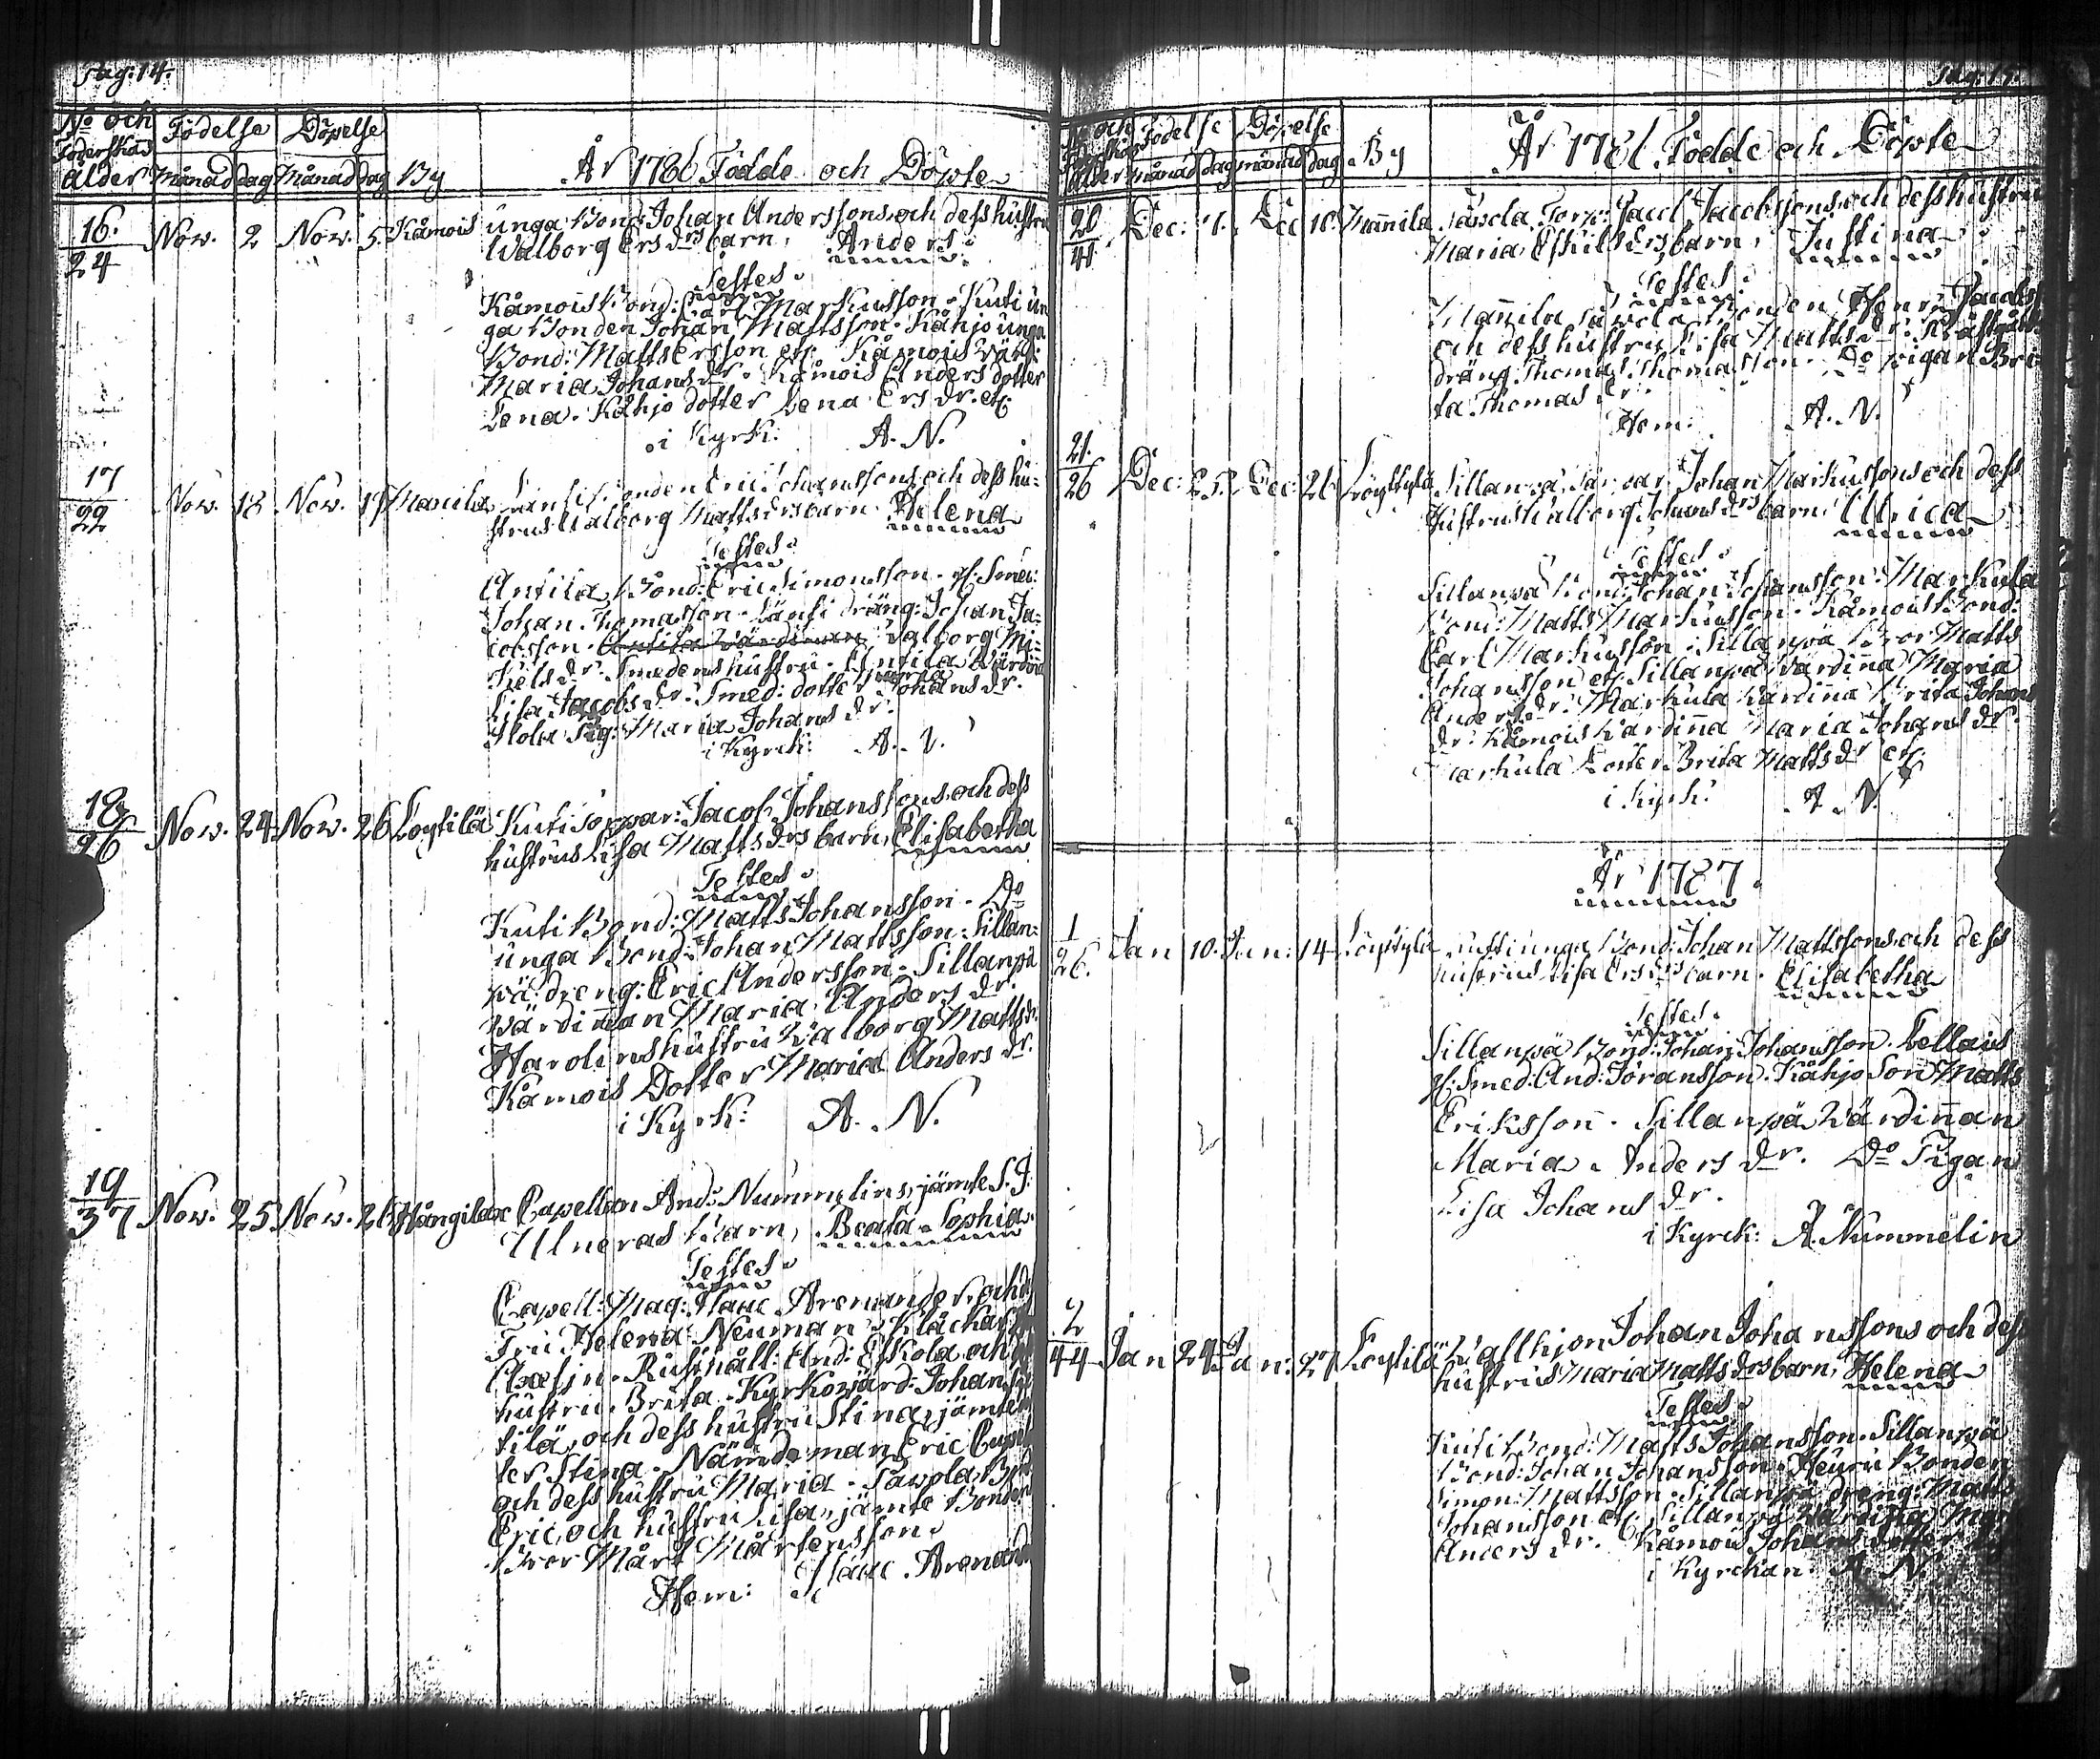 Pag: 14.
No och Foderskans ålder
Födelse Månad dag
Döpelse Månad dag
By
År 1786 Födde och Döpte
16. 24 Nov. 2 Nov. 5. Kåmois unga Bond: Johan Anderssons och dess hustru
Walborg Ers drs barn, Anders.
Testes.
Kåmois Bond: Carl Markusson. Kuti un
ga Bonden Johan Mattsson. Kåhjo unga
Bond: Matts Ersson etc. Kåmois Värd:
Maria Johans dr. Kåmois Anders dotter
Lena. Kåhjo dotter Lena Ers dr. etc.
i Kyrk: A. N.
17 22 Nov. 18 Nov. 19 Mannila Länsi Bonden Eric Johanssons och dess hu-
strus Walborg Matts drs barn Helena
Testes.
Antila Bond: Eric Simonsson. Smed:
Johan Thomasson. Länsi dräng: Johan Ja-
cobsson. Antila Värdinnan Valborg Mi-
kels dr. Smedens hustru. Antila Värdiña
Lisa Jacobs dr. Smed: dotter Maria Johans dr.
pig: Maria Johans dr.
i Kyrck: A. N.
18 26 Nov. 24 Nov. 26 Loytilä Kuti Torpar: Jacob Johanssons och dess
hustrus Lisa Matts drs barn, Elisabetha
Testes.
Kuti Bond: Matts Johansson. Do
unga Bond: Johan Mattsson. Sillan-
pä dreng: Eric Andersson. Sillanpä
Värdiñan Maria Anders dr.
Harolins hustru Walborg Matts dr.
Kåmois Dotter Maria Anders dr.
i Kyrk: A. N.
19 37 Nov. 25 Nov. 26 Hångilax Capellan And: Nummelins, jämte S. J.
Ulneras barn, Beata Sophia.
Testes.
Capell: Mag: Isaac Arenander och
Fru Helena Neuman. Klåckar
Rusthåll: And: Eskola och
hustru Brita. Kyrkovärd: Johan
tilä, och dess hustru Stina, jämte
ter Stina. Nämdeman Eric
och dess hustru Maria. Pavola
Eric, och hustru Lisa, jämte Bonden
Bror Mårt Mårtensson.
Hem: Isaac Arenand
Pag: 15.
No och Foderskans ålder
Födelse månad dag
Döpelse månad dag
By
År 1786. Födde och Döpte
20 41 Dec: Dec 10. Mannila Pavola Torp: Pauel Jacobssons och dess hustrus
Maria Eskils drs barn, Justina
Testes.
Mannila Pavola Bonden Henr: Jacobs
och dess hustru Lisa Matts dr.
dräng Thomas Thomasson. Do pigan Bri
ta Thomas dr.
Hem: A. N.
21. 26 Dec: 25. Dec: 26 Löyttylä Sillanpä Torpar Johan Markussons och dess
hustrus Walborg Johans drs barn, Ullrica
Testes.
Sillanpä Bond: Johan Johansson. Markula
Bond: Matts Markusson. Kåmois Bond:
Carl Markusson. Sillanpä Bror Matts
Johansson etc. Sillanpä Värdiña Maria
Anders dr. Markula Värdiña Brita Johans
dr. Kåmois Värdiña Maria Johans dr.
Markula Dotter Brita Matts dr etc.
i Kyrk: A. N.
År 1787.
1 26. Jan 10. Jan: 14 Löyttylä Kuti unga Bond: Johan Mattssons och dess
hustrus Lisa Ers drs barn. Elisabetha
Testes.
Sillanpä Bond: Johan Johansson.
Smed: And: Joransson. Kåhjo Son Matts
Eriksson. Sillanpä Värdiñan
Maria Anders dr. Do Pigan
Lisa Johans dr.
i Kyrck: A. Nummelin
2 44 Jan 24 Jan: 27 Loytilä Vallhjon Johan Johanssons och dess
hustrus Maria Matts drs barn, Helena
Testes.
Kuti Bond: Matts Johansson. Sillanpä
Bond: Johan Johansson. Heuru Bonden
Simon Mattsson. Sillanpä dreng: Matts
Johansson etc. Sillanpä Värdiña Mar
Anders dr. Kåmois Johans dotter
i Kyrckan A. N.